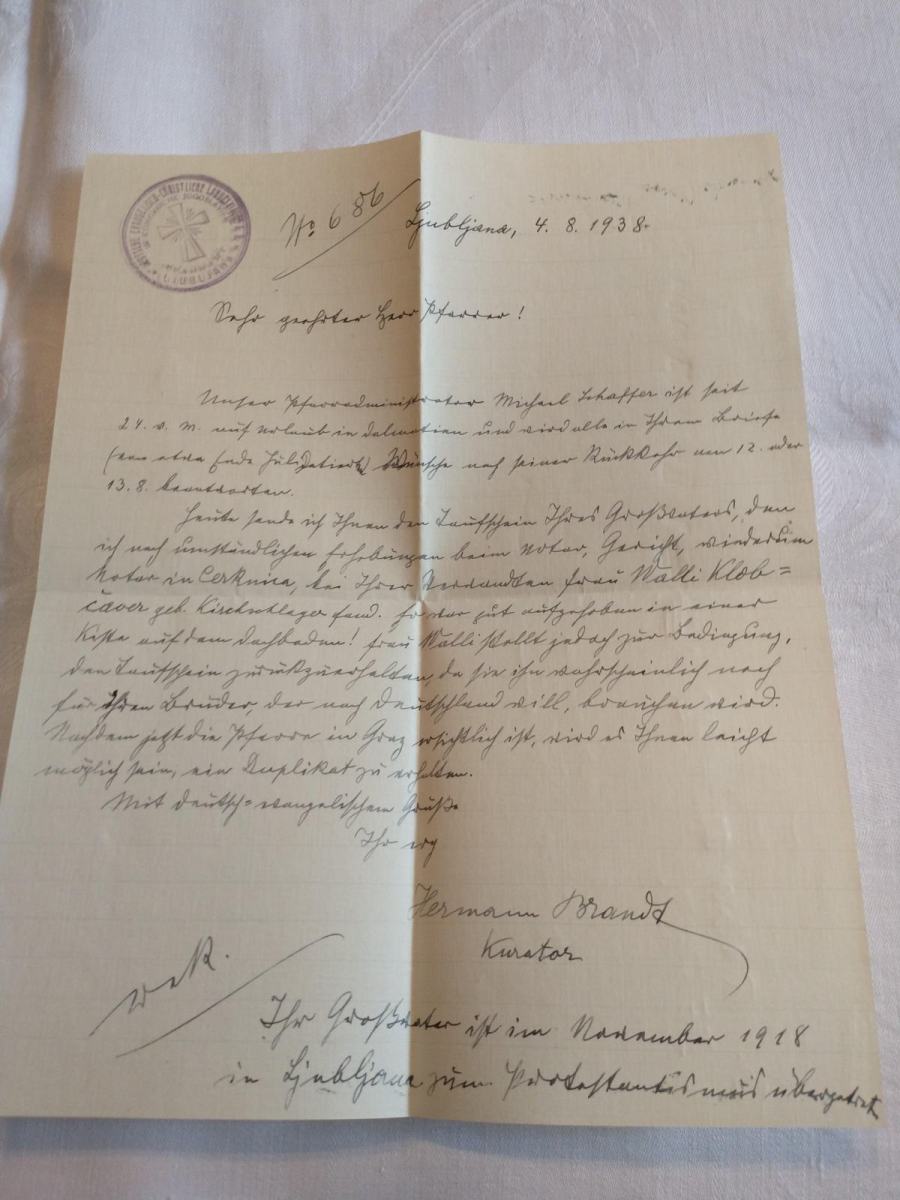 DEUTSCHE EVANGELISCH-CHRISTLICHE
LJUBLJANA
No 686
Ljubljana, 4. 8. 1938.
Sehr geehrter Herr Pfarrer!
Unser Pfarradministrator Michael Schaffer ist seit
24. v. M. auf Urlaub in Dalmatien und wird alle in Ihrem Briefe
(von etwa Ende Juli datiert) Wünsche nach seiner Rückkehr am 12. oder
13.8. beantworten.
Heute sende ich Ihnen den Taufschein Ihres Großvaters, den
ich nach umständlichen Erhebungen beim Notar, Gericht, wiederum
Notar in Cerknica, bei Ihrer Verwandten Frau Walli Klob=
čaver geb. Kirschschlager fand. Er war gut aufgehoben in einer
Kiste auf dem Dachboden! Frau Walli stellt jedoch zur Bedingung,
den Taufschein zurückzuerhalten, da sie ihn wahrscheinlich noch
für ihren Bruder, der nach Deutschland will, brauchen wird.
Nachdem jetzt die Pfarre in Graz ersichtlich ist, wird es Ihnen leicht
möglich sein, ein Duplikat zu erhalten.
Mit deutsch=evangelischem Gruße
Ihr erg
Hermann Brandt
Kurator
Ihr Großvater ist im November 1918
in Ljubljana zum Protestantismus übergetret